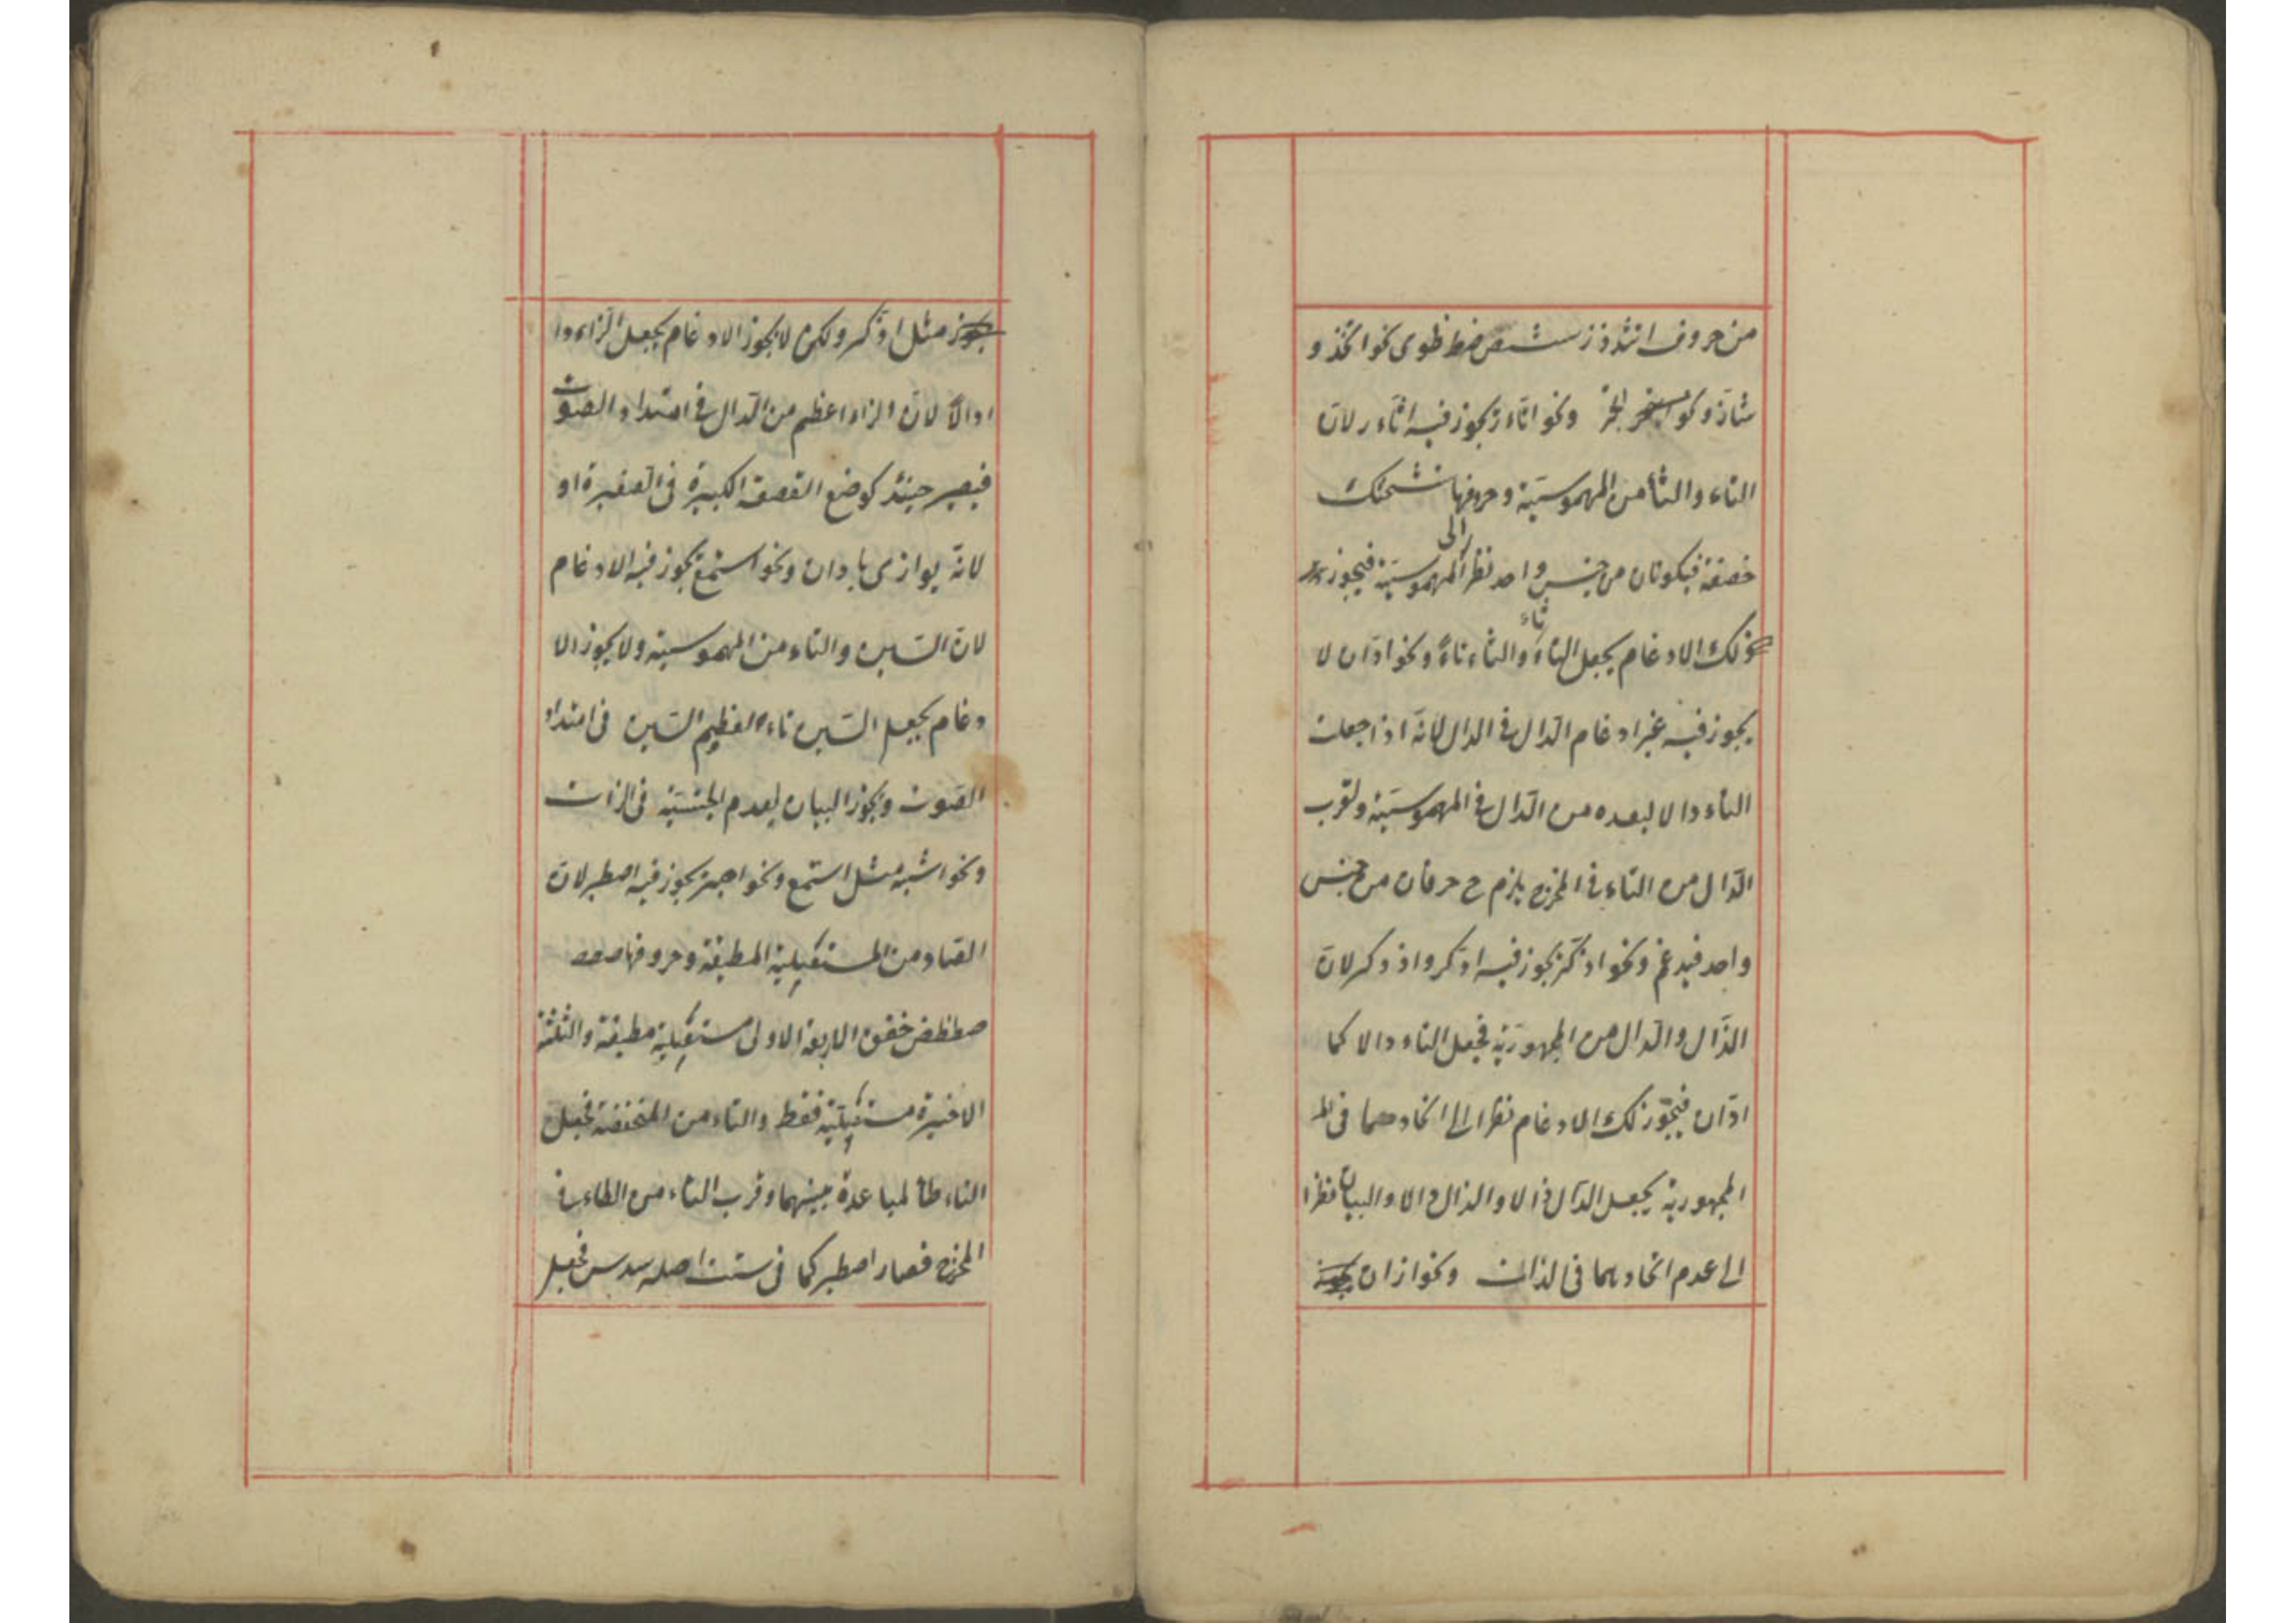 من حروف اتثدذز سشصضطظوى نحو اتخذ و
شاذ ونحو اتجر ونحو اثار يجوز فيه اتار لان
التاء والثا من المهموسية وحروفها ستشحثك
خصفة فيكونان من جنس واحد نظرا الى المهموسية فيجوز
لك الادغام بجعل التاء ثاء والثاء تاء ونحو ادان لا
يجوز فيه غير ادغام الدال في الدال لانه اذا جعلت
التاء دالا لبعده من الدال في المهموسية ولقرب
الدال من التاء في المخرج يلزم ح حرفان من جنس
واحد فيدغم ونحو اذكر يجوز فيه ادكر واذدكر لان
الذال والدال من المجهورية فجعل التاء دالا كما
ادان فيجوز لك الادغام نظرا الى اتحادهما فى
المجهورية بجعل الدال ذالا والذال دالا والبيان نظرا
الى عدم اتحادهما فى الذات ونحو ازان
مثل اذكر ولكن لا يجوز الادغام بجعل الزاء دا
دالا لان الزاء اعظم من الدال فى امتداد الصوت
فيصير حينئذ كوضع القصعة الكبيرة فى الصغيرة او
لانه يوازى بادان ونحو استمع يجوز فيه الادغام
لان السين والتاء من المهموسية ولا يجوز الا
دغام بجعل السين تاء لعظيم السين فى امتداد
الصوت ويجوز البيان لعدم الجنسية فى الذات
ونحو اشبه مثل استمع ونحو اصبر يجوز فيه اصطبر لان
الصاد من المستعلية المطبقة وحروفها
صطظض خغق الاربعة الاولى مستعلية مطبقة والثلثة
الاخيرة مستعلية فقط والتاء من المنخفضة فجعل
التاء طاء لمباعدة بينهما وقرب التاء من الطاء فى
المخرج فصار اصطبر كما فى ست اصله سدس فجعل